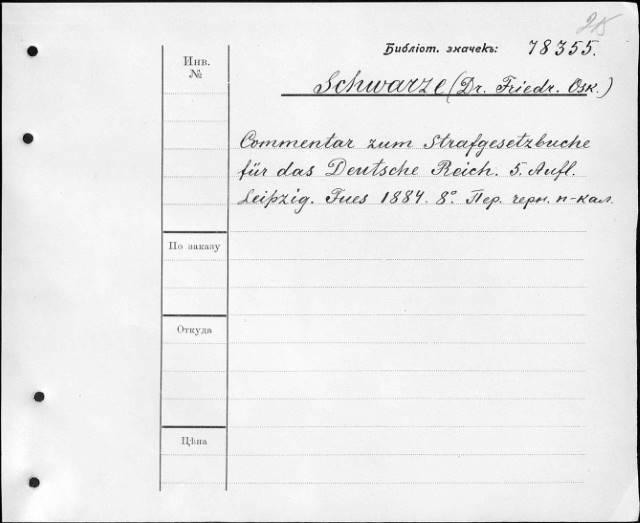 Библіот. значекъ: 78355.
Инв.
№
Schwarze (Dr. Friedr. Osk.)
Commentar zum Strafgesetzbuche
für das Deutsche Reich. 5. Aufl.
Leipzig. Fues 1884. 8°. Пер. черн. п-кал.
По заказу
Откуда
Цѣна